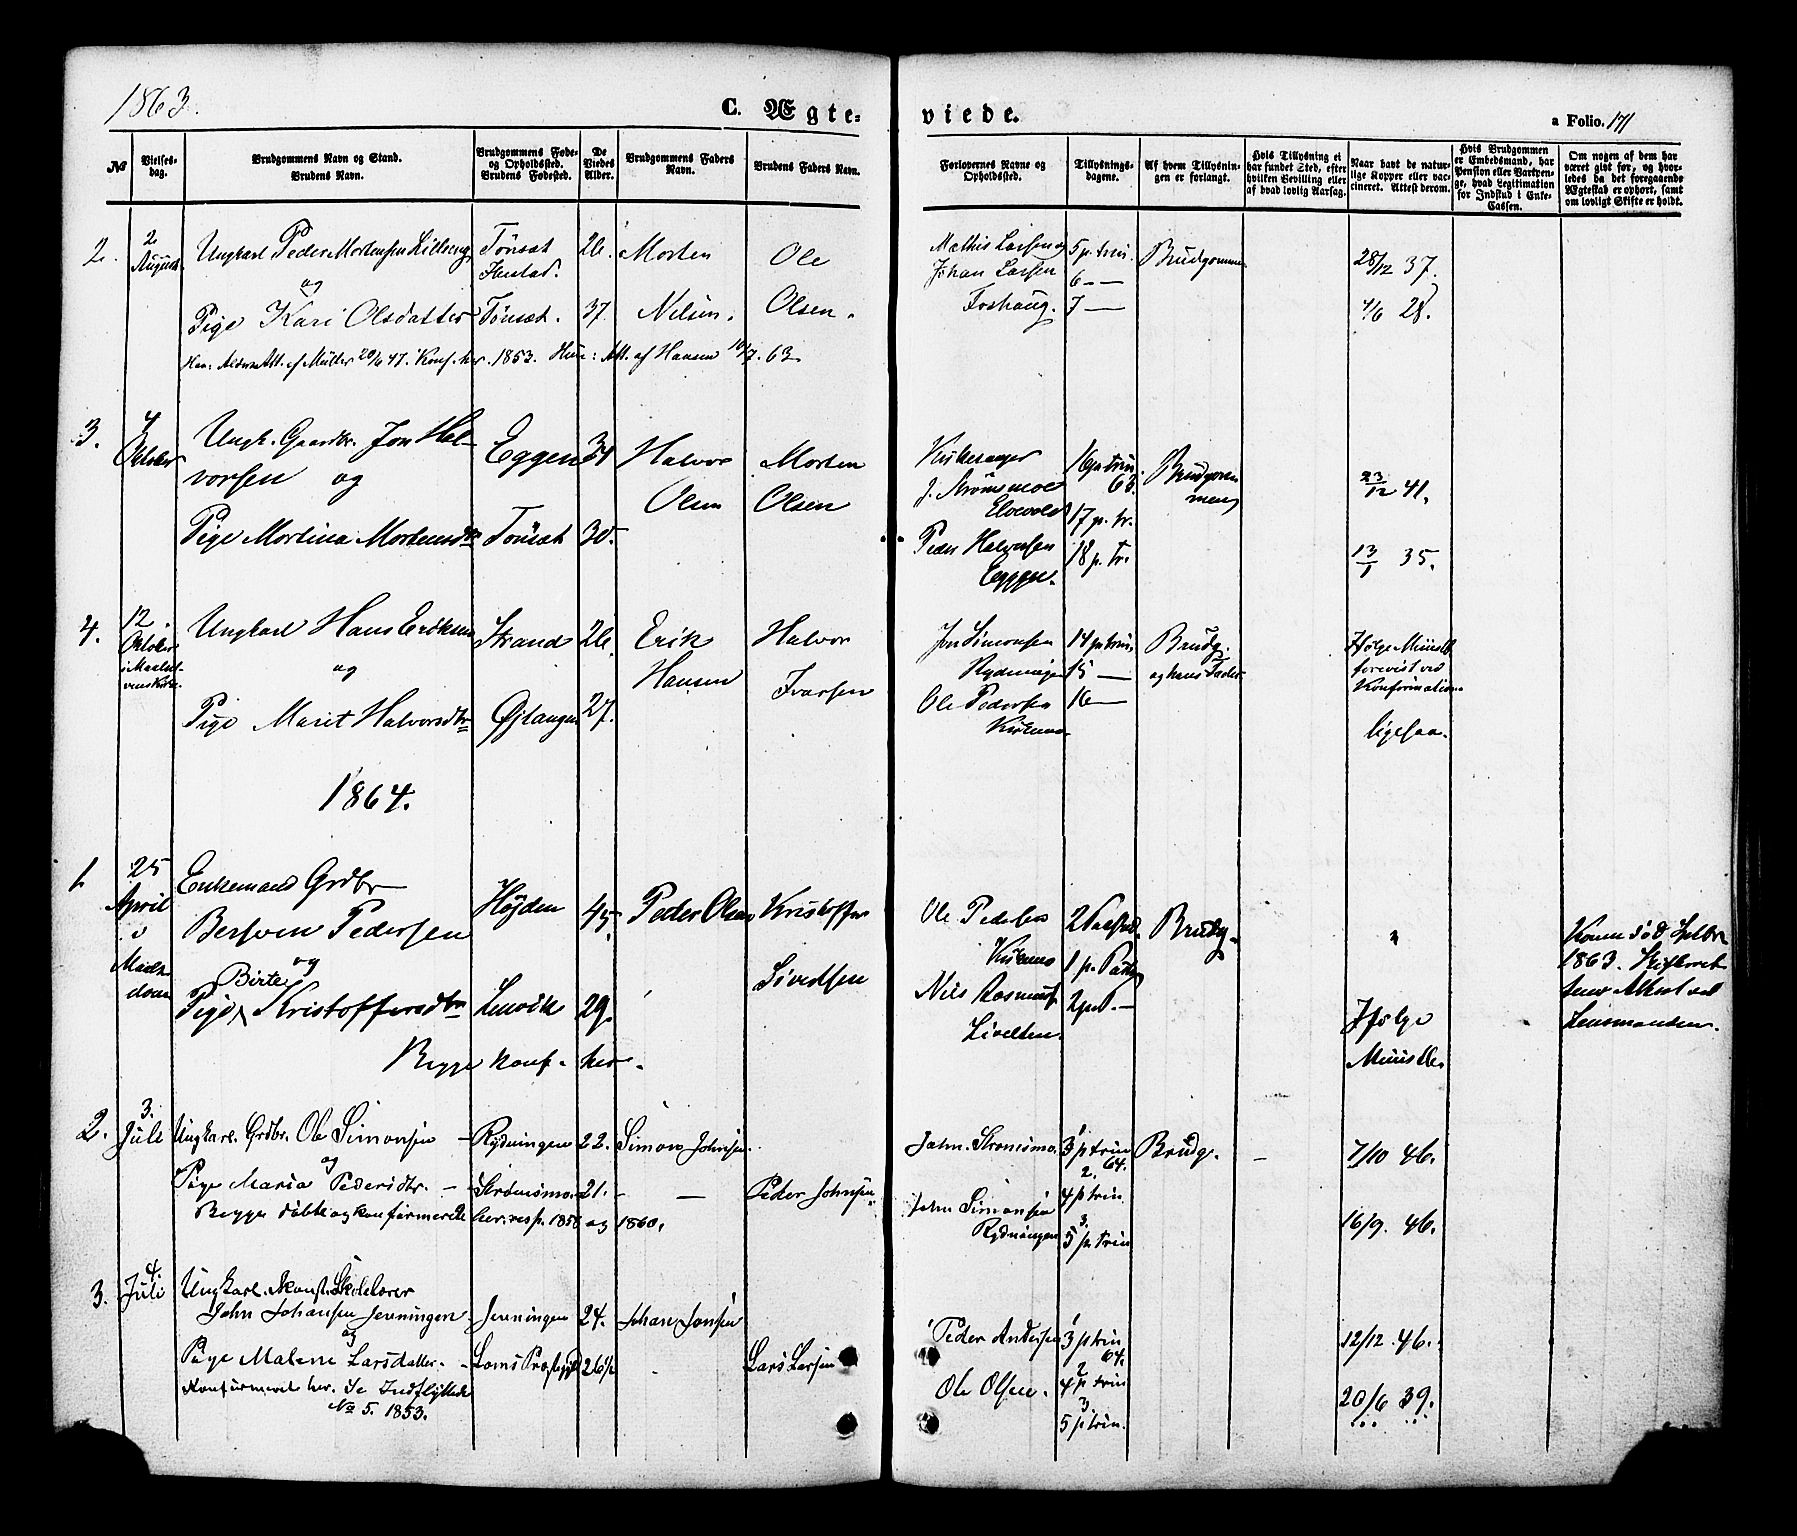 1863.
C. Ægte-
viede.
a Folio. 171
No
Vielses-
dag.
Brudgommens Navn og Stand.
Brudens Navn.
Brudgommens Føde-
og Opholdssted.
Brudens Fødested.
De
Viedes
Alder.
Brudgommens Faders
Navn.
Brudens Faders Navn.
Forlovernes Navne og
Opholdssted.
Tillysnings-
dagene.
Af hvem Tillysnin-
gen er forlangt.
Hvis Tillysning ei
har fundet Sted, efter
hvilken Bevilling eller
af hvad lovlig Aarsag.
Naar havt de natur-
lige Kopper eller vac-
cineret. Attest derom.
Hvis Brudgommen
er Embedsmand, har
Pension eller Vartpen-
ge, hvad Legitimation
for Indskud i Enke-
Cassen.
Om nogen af dem har
været gift før, og hvor-
ledes da det foregaaende
Ægteskab er ophørt, samt
om lovligt Skifte er holdt.
2. 2 August Ungkarl Peder Mortensen Tönset 26. Morten Ole
og
Pige Kari Olsdatter Tönset. 37. Nilsen. Olsen.
Mathis Larsen og 5 p. trin. Brudgommen 28/12 37.
Johan Larsen 6 — —
Foshaug. 7 — 4/6 28.
Han: Att. af Müller 47. Konf. her 1853. Hun: Att. af Hansen 10/7. 63
3. 4 Oktober Ungk. Gaardbr. Jon Hal- Eggen 34 Halvor Morten
vorsen og Olsen Olsen
Pige Martina Mortensdtr Tönset 30.
Kirkesanger 16 p. trin. 63. Brudgom- 23/12 41.
J. Strømsmoe men
Elvevold 17 p. tr.
Peder Halvorsen 18 p. tr. 13/1 35.
Eggen.
4. 12. Oktober i Maalsel- Ungkarl Hans Eriksen Strand 26. Erik Halvor
og Hansen Ivarsen
Pige Marit Halvorsdtr Øjtangen 27.
Jon Simonsen 14 p. trin. Brudg. Ifølge Minist.
Rydningen 15 — og hans Fader forevist ved
Konfirmation
Ole Pedersen 16 —
Kirkemo ligesaa.
1864.
1. 25 April i Maals- Enkemand Grdbr
Bersven Pedersen Højden 45. Peder Olsen Kristoffer
og Sivertsen
Birte
Pige Kristoffersdtr Lenvik 29.
Begge konf. her.
Ole Pedersen Brudg.
Kirkemo 1 p. Paaske
Nils Rasmuss.
Konen död Septbr
1863. Skiftevæt
Lensmanden.
Ifølge
2. 3. Juli Ungkarl. Grdbr. Ole Simonsen — Rydningen 22. Simon Johnsen.
og
Pige Maria Pedersdtr. — Strömsmo. 21. — — Peder Johnsen
Begge döbte og konfirmerede her. resp. 1856 og 1860.
John. Strömsmo. 3 p trin 64. Brudg. — 7/10 46.
2. 4 p trin
John Simonsen
Rydningen 3. 5 p. trin 16/9. 46.
3. 4. Juli Ungkarl. Konst. Skolelærer
John Johansen Jenningen. Jenningen 24. Johan Jonsen
og
Pige Malene Larsdatter. — Loms Præstegjeld 26 — Lars Larsen
Konfirmeret her. Se Indflyttede
No 5. 1853.
Peder Andersen 3 p trin 64. 12/12. 46.
2 4 p trin
Ole Olsen. 3 5 p trin. 20/6 39.